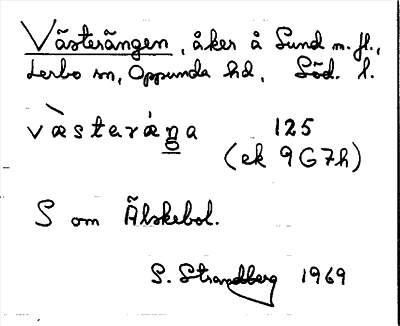 Västerängen, åker å Sund m.fl.,
Lerbo sn, Oppunda hd, Söd. l.
vàsterán̲a 125
(ek 9G7h)
S om Älskebol.
S. Strandberg 1969